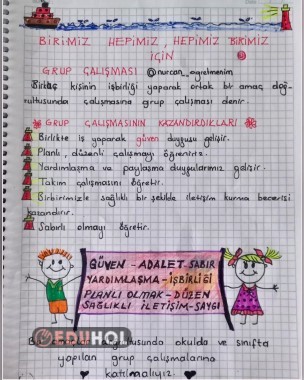 BİRİMİZ HEPİMİZ, HEPİMİZ BİRİMİZ
İÇİN
GRUP ÇALIŞMASI @nurcan_ogretmenim
Birkaç kişinin işbirliği yaparak ortak bir amaç doğ-
rultusunda çalışmasına grup çalışması denir.
GRUP ÇALIŞMASININ KAZANDIRDIKLARI
Birlikte iş yaparak güven duygusu gelişir.
Planlı, düzenli çalışmayı öğreniriz.
Yardımlaşma ve paylaşma duygularımız gelişir.
Takım çalışmasını öğretir.
Birbirimizle sağlıklı bir şekilde iletişim kurma becerisi
kazandırır.
Sabırlı olmayı öğretir.
GÜVEN - ADALET - SABIR
YARDIMLAŞMA - İŞBİRLİĞİ
PLANLI OLMAK - DÜZEN
SAĞLIKLI İLETİŞİM - SAYGI
EDUHOL
Bu doğrultusunda okulda ve sınıfta
yapılan grup çalışmalarına
katılmalıyız.